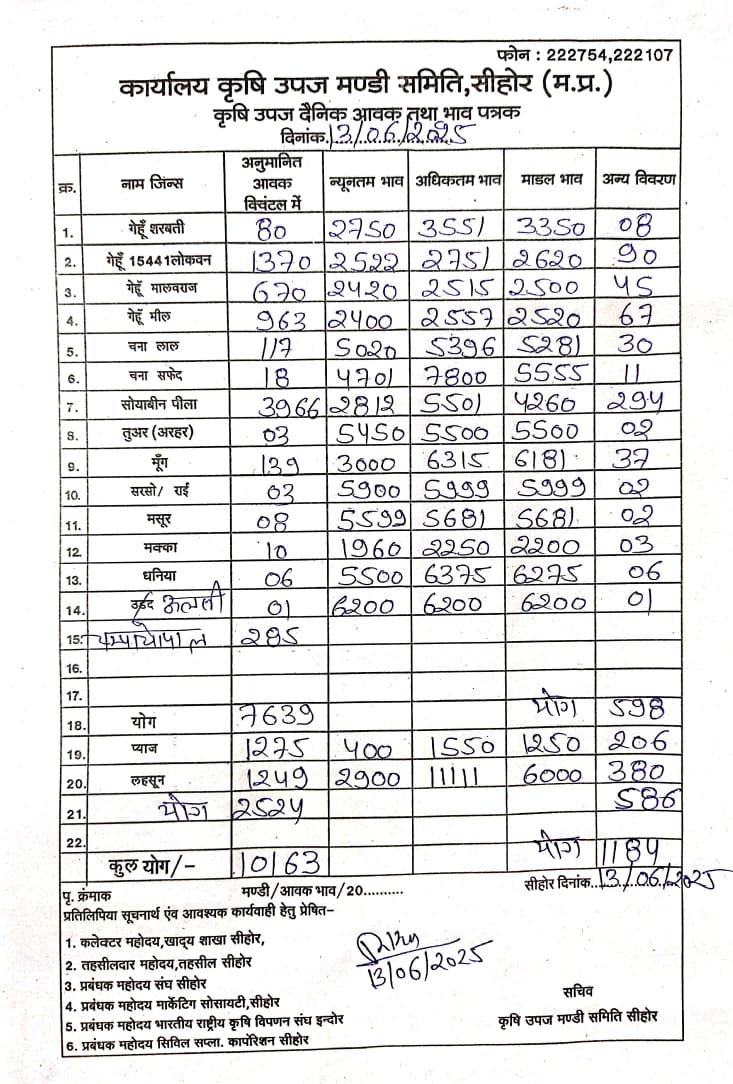 फोन : 222754,222107
कार्यालय कृषि उपज मण्डी समिति,सीहोर (म.प्र.)
कृषि उपज दैनिक आवक तथा भाव पत्रक
दिनांक.13/06/2025
क्र. नाम जिंन्स अनुमानित आवक क्विंटल में न्यूनतम भाव अधिकतम भाव माडल भाव अन्य विवरण
1. गेहूँ शरबती 80 2750 3551 3350 08
2. गेहूँ 15441लोकवन 1370 2522 2751 2620 90
3. गेहूँ मालवराज 670 2420 2515 2500 45
4. गेहूँ मील 963 2400 2557 2520 67
5. चना लाल 117 5020 5396 5281 30
6. चना सफेद 18 4701 7800 5555 11
7. सोयाबीन पीला 3966 2812 5501 4260 294
8. तुअर (अरहर) 03 5450 5500 5500 02
9. मूँग 139 3000 6315 6181 37
10. सरसो/ राई 03 5900 5999 5999 02
11. मसूर 08 5599 5681 5681 02
12. मक्का 10 1960 2250 2200 03
13. धनिया 06 5500 6375 6275 06
14. उड़द 01 6200 6200 6200 01
15. 285
16.
17.
18. योग 7639 योग 598
19. प्याज 1275 400 1550 1250 206
20. लहसून 1249 2900 11111 6000 380
21. योग 2524 586
22.
कुल योग/- 10163 योग 1184
पृ. क्रंमाक मण्डी/आवक भाव/20.......... सीहोर दिनांक..13/06/2025
प्रतिलिपिया सूचनार्थ एंव आवश्यक कार्यवाही हेतु प्रेषित–
1. कलेक्टर महोदय,खाद्य शाखा सीहोर,
2. तहसीलदार महोदय,तहसील सीहोर
13/06/2025
3. प्रबंधक महोदय संघ सीहोर
4. प्रबंधक महोदय मार्केटिंग सोसायटी,सीहोर
5. प्रबंधक महोदय भारतीय राष्ट्रीय कृषि विपणन संघ इन्दोर
6. प्रबंधक महोदय सिविल सप्ला. कार्पोरेशन सीहोर
सचिव
कृषि उपज मण्डी समिति सीहोर